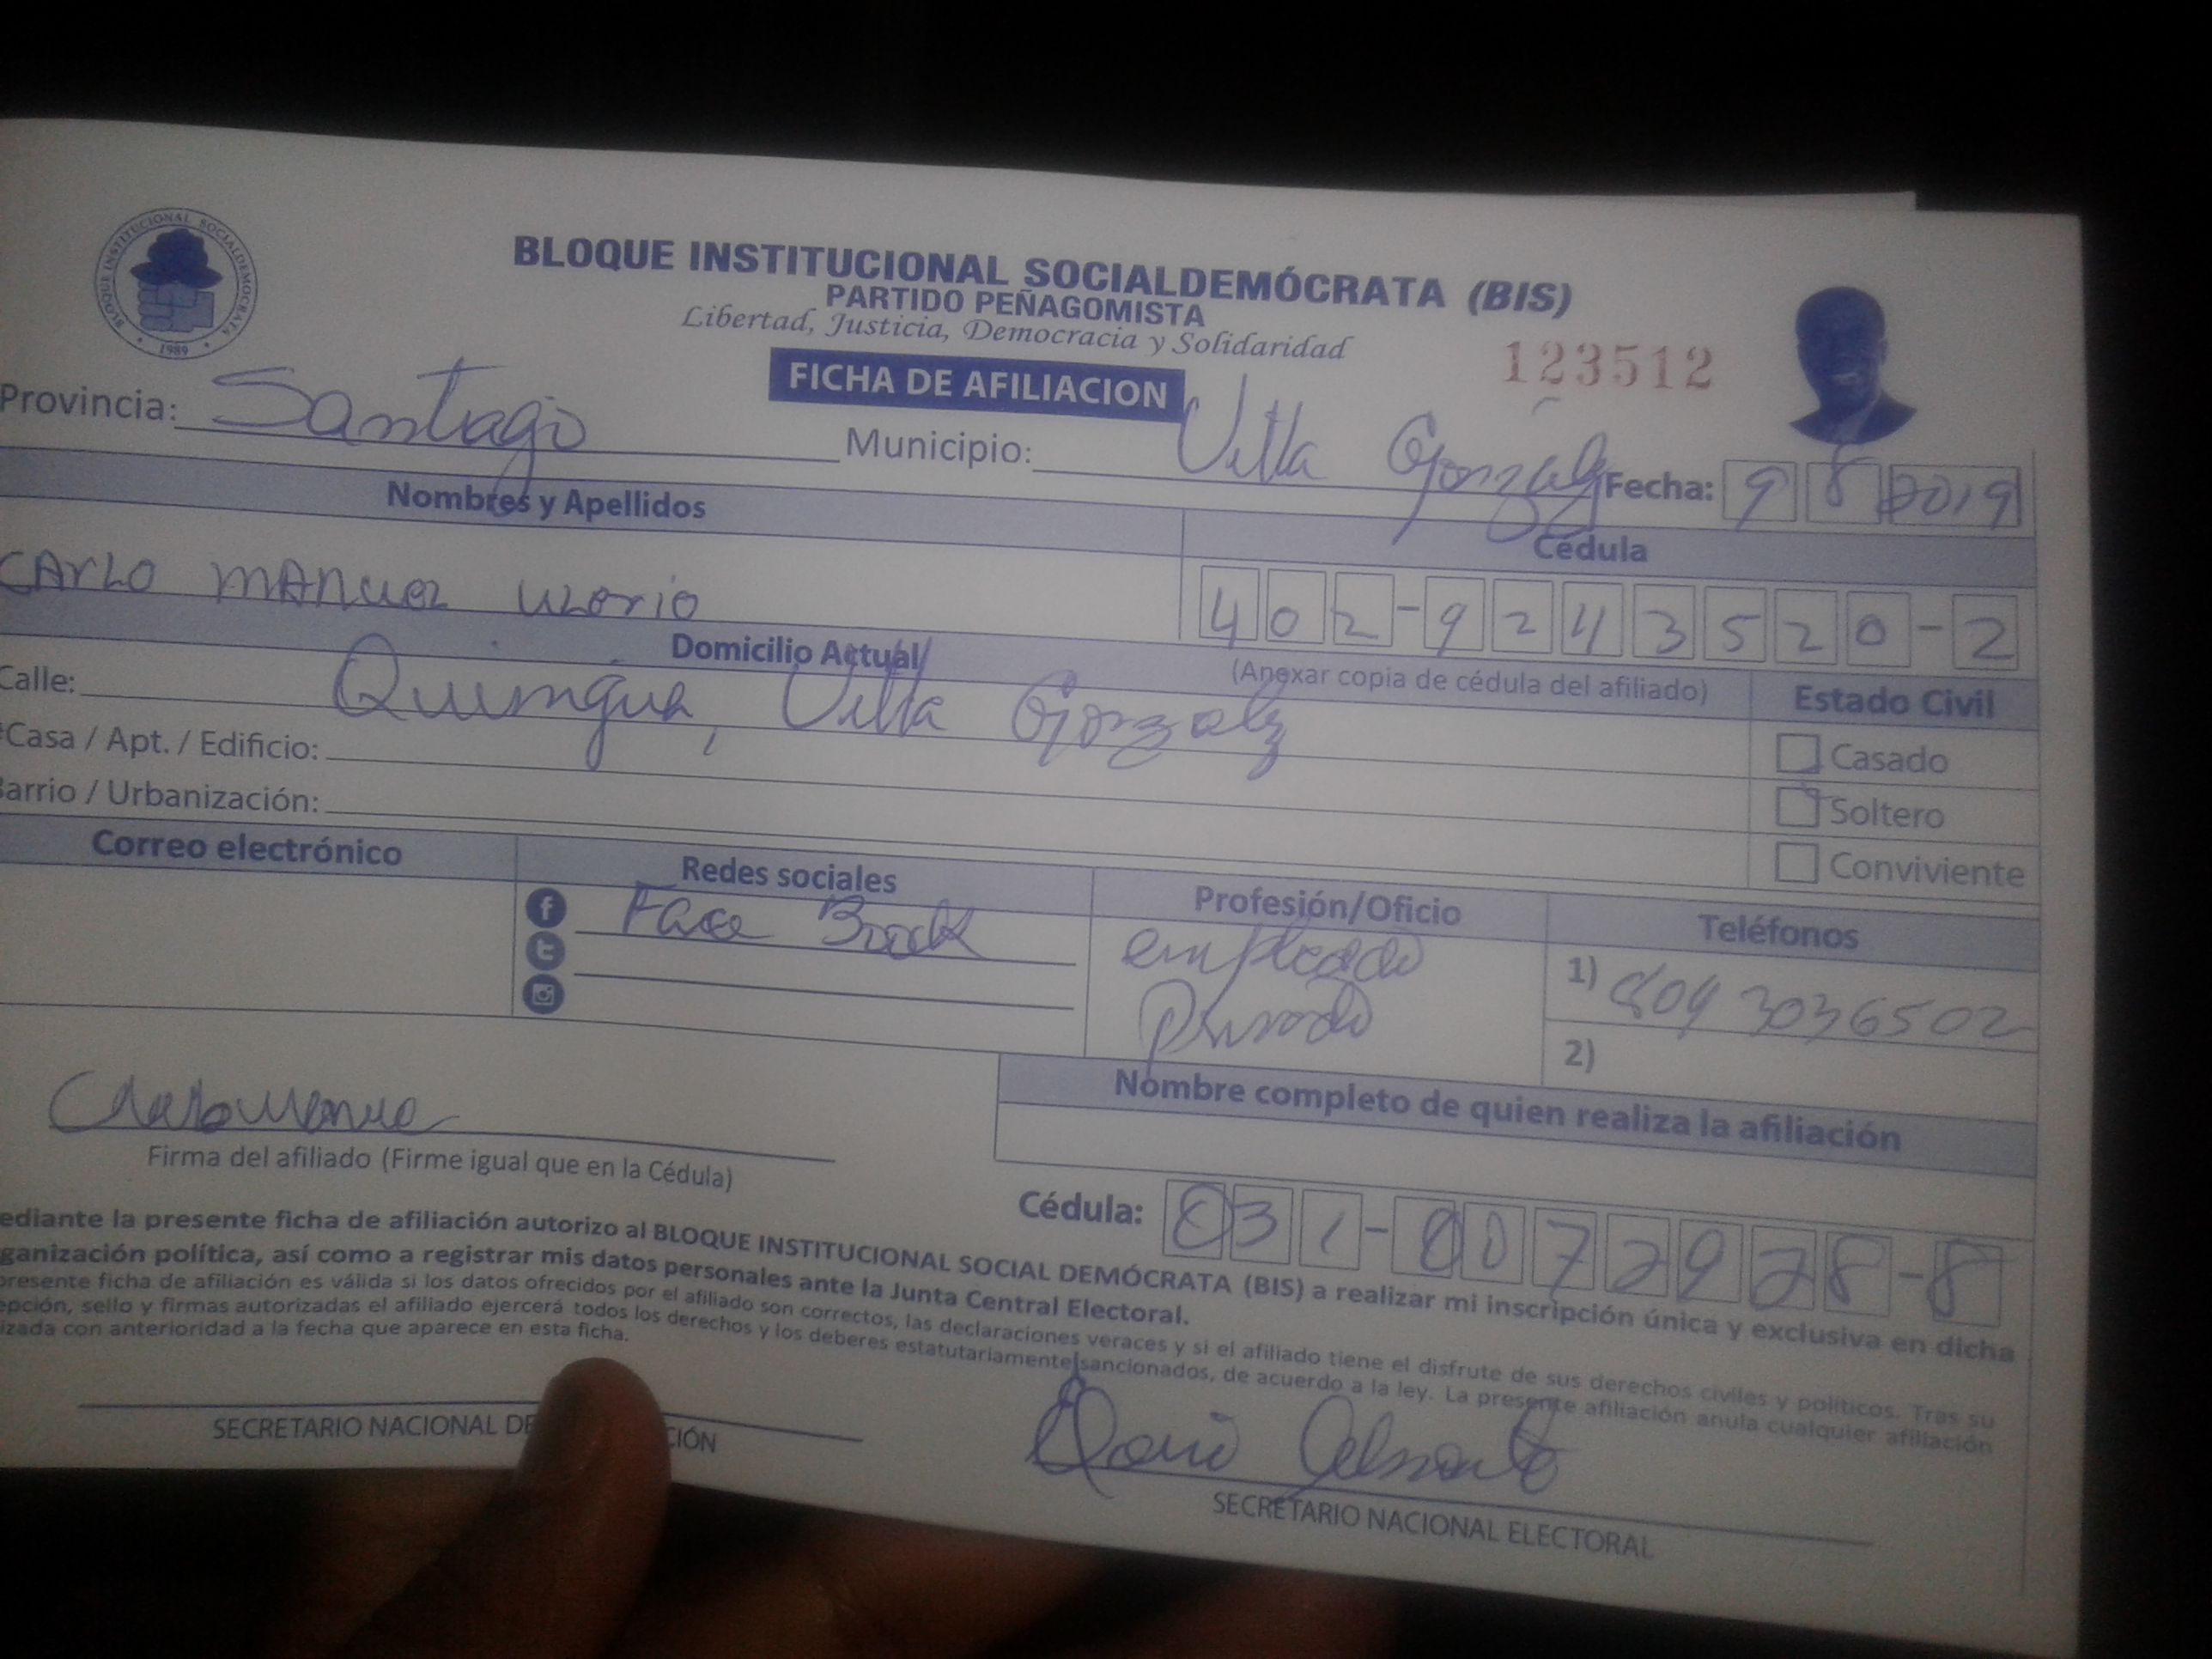 BLOQUE INSTITUCIONAL SOCIALDEMOCRATA
1989
BLOQUE INSTITUCIONAL SOCIALDEMÓCRATA (BIS)
PARTIDO PEÑAGOMISTA
Libertad, Justicia, Democracia y Solidaridad
FICHA DE AFILIACION
123512
Provincia: Santiago Municipio: Villa Gonzalz Fecha: 9 8 2019
Nombres y Apellidos Cédula
CARLO MANUEL 402-9243520-2
Domicilio Actual (Anexar copia de cédula del afiliado) Estado Civil
Calle: Quinigua, Villa Gonzalz
Casado
Casa / Apt. / Edificio:
Soltero
Barrio / Urbanización:
Conviviente
Correo electrónico Redes sociales Profesión/Oficio Teléfonos
Face Book empleado 1) 809 3036502
Privado 2)
Nombre completo de quien realiza la afiliación
Firma del afiliado (Firme igual que en la Cédula)
Cédula: 031-0072928-8
ediante la presente ficha de afiliación autorizo al BLOQUE INSTITUCIONAL SOCIAL DEMÓCRATA (BIS) a realizar mi inscripción única y exclusiva en dicha
ganización política, así como a registrar mis datos personales ante la Junta Central Electoral.
presente ficha de afiliación es válida si los datos ofrecidos por el afiliado son correctos, las declaraciones veraces y si el afiliado tiene el disfrute de sus derechos civiles y políticos. Tras su
epción, sello y firmas autorizadas el afiliado ejercerá todos los derechos y los deberes estatutariamente sancionados, de acuerdo a la ley. La presente afiliación anula cualquier afiliación
izada con anterioridad a la fecha que aparece en esta ficha.
SECRETARIO NACIONAL DE CIÓN
SECRETARIO NACIONAL ELECTORAL